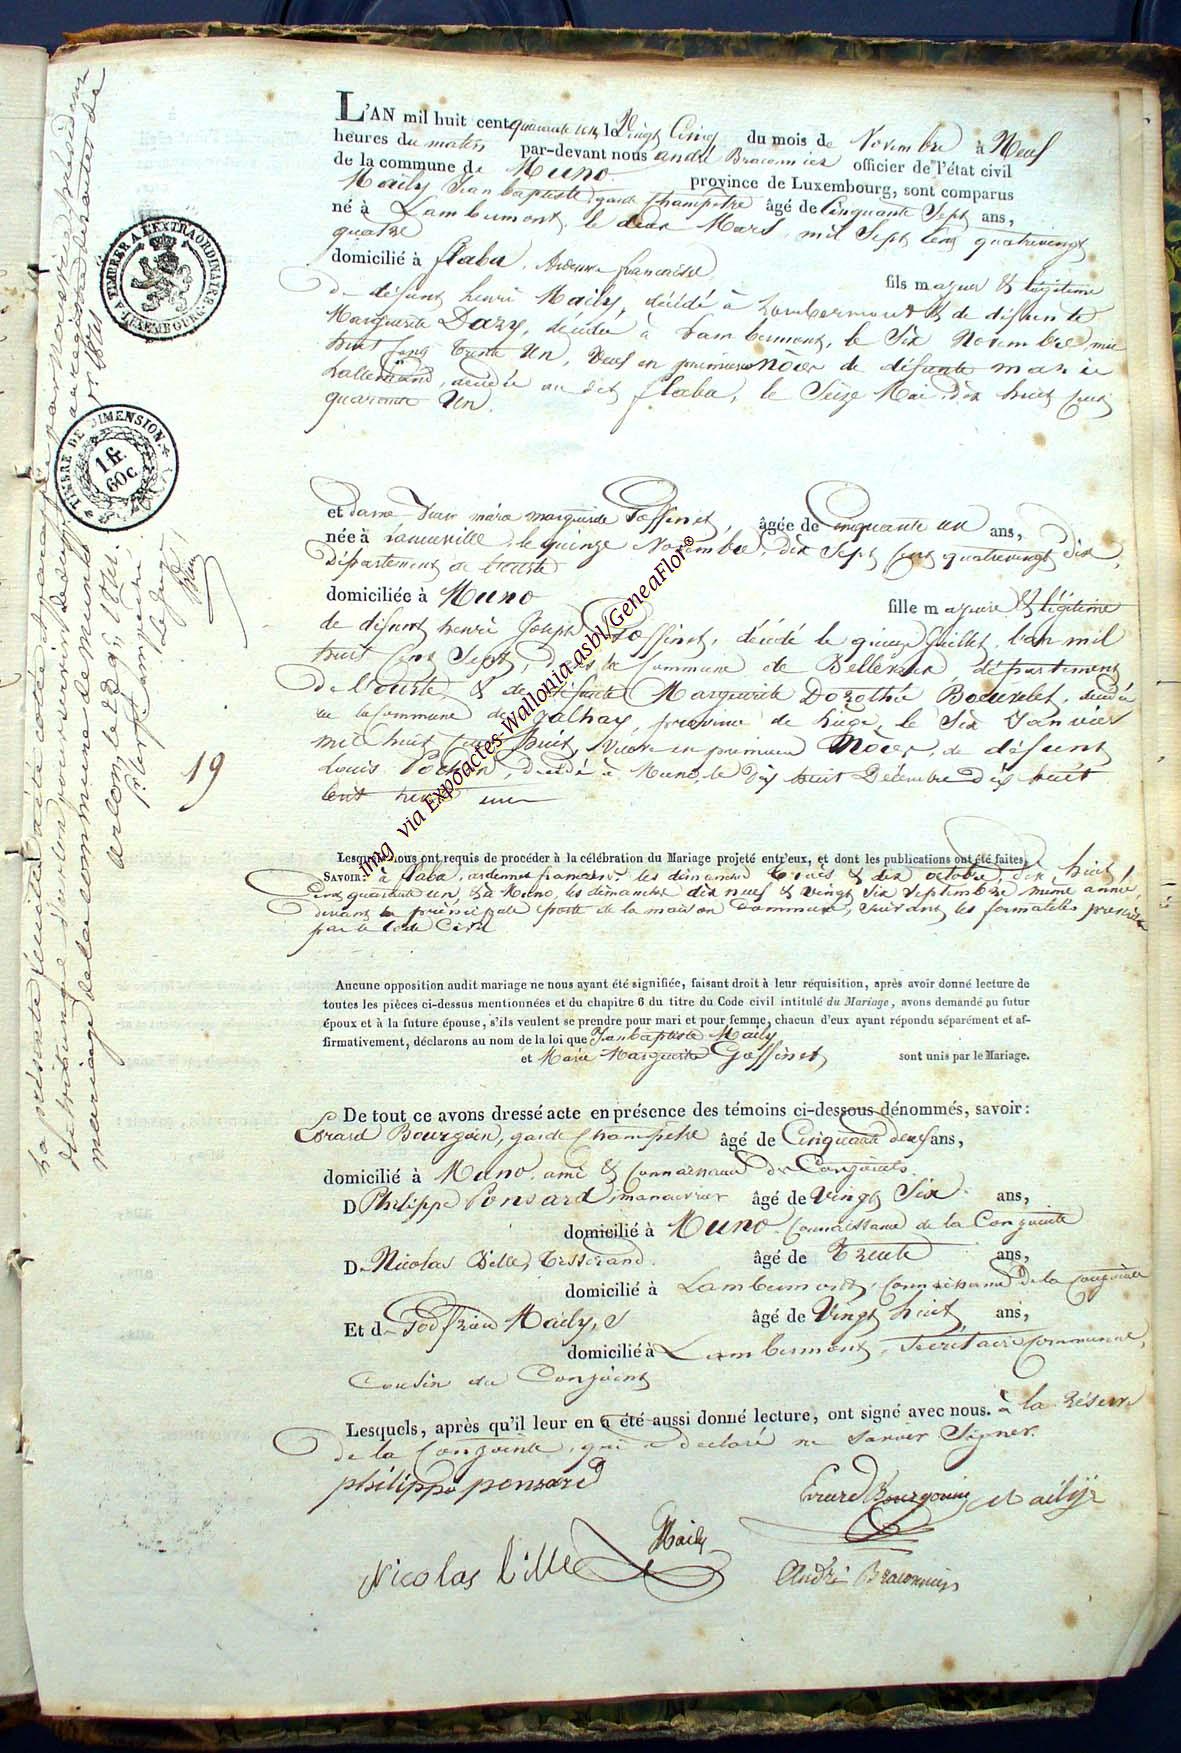 L'AN mil huit cent quarante un, le Vingt Cinq du mois de Novembre à Neuf
heures du matin par-devant nous andré Braconnier officier de l'état civil
de la commune de Muno province de Luxembourg, sont comparus
Maily Jean baptiste, garde Champetre âgé de Cinquante Sept ans,
né à Lambermont, le deux Mars mil Sept Cent quatrevingt
quatre
domicilié à flaba, Ardenne française fils majeur & légitime
De défunt henri Maily, décédé à Lambermont & de défunte
Marguerite Dazy, décédée à Lambermont, le Six Novembre mil
huit Cent trente Un, Veuf en premieres Nôces de défunte marie
Lallemand, décédée au dit flaba, le Seize Mai dix huit Cent
quarante Un.
et dame marguerite Goffinet, âgée de Cinquante un ans,
née à le quinze Novembre, dix Sept Cent quatrevingt dix,
Département de l'ourte
domiciliée à Muno fille majeure & légitime
de défunt henri Joseph Goffinet, décédé le Juillet, l'an mil
huit Cent Sept, dans la Commune de département
De l'ourte & de défunte Marguerite Dorothé décédée
en la Commune de Jalhay, province de Liège, le Six Janvier
mil huit Cent huit, Veuve en premieres Nôces, de défunt
Louis décédé à Muno, le dix huit Décembre dix huit
Cent trente un
19
Lesquels nous ont requis de procéder à la célébration du Mariage projeté entr'eux, et dont les publications ont été faites,
SAVOIR: à flaba, ardennes françaises les dimanches trois & dix octobre, dix huit
Cent quarante un, & à Muno, les dimanches dix neuf & vingt Six Septembre même année,
devant la principale porte de la maison Commune, suivant les formalités prescrites
par le Code Civil
Aucune opposition audit mariage ne nous ayant été signifiée, faisant droit à leur réquisition, après avoir donné lecture de
toutes les pièces ci-dessus mentionnées et du chapitre 6 du titre du Code civil intitulé du Mariage, avons demandé au futur
époux et à la future épouse, s'ils veulent se prendre pour mari et pour femme, chacun d'eux ayant répondu séparément et af-
firmativement, déclarons au nom de la loi que Jeanbaptiste Maily
et Marie Marguerite Goffinet, sont unis par le Mariage.
De tout ce avons dressé acte en présence des témoins ci-dessous dénommés, savoir:
Evrard Bourgoin, garde Champetre âgé de Cinquante deux ans,
domicilié à Muno, ami & Connaissance des Conjoints.
De Philippe Ponsard manœuvrier âgé de Vingt Six ans,
domicilié à Muno. Connaissance de la Conjointe
De Nicolas tisserand âgé de Trente ans,
domicilié à Lambermont, Connaissance de la Conjointe
Et de Godfroid Maily, âgé de Vingt huit ans,
domicilié à Lambermont, Secrétaire Communal,
Cousin du Conjoint
Lesquels, après qu'il leur en a été aussi donné lecture, ont signé avec nous. à la réserve
de la Conjointe, qui a déclaré ne Savoir Signer.
philippe ponsard
Evrard Bourgoin Mailij
Maily
Nicolas
André Braconnier
A TIMBRER A L'EXTRAORDINAIRE. LUXEMBOURG.
TIMBRE DE DIMENSION.
1 fr.
60 c.
la présente feuille a été cotée et paraphée par Nous vice président
du tribunal d'arlon pour servir de acte de
mariage de la commune de Muno
arlon, le
img via Expoactes-Wallonia asbl/GeneaFlor©